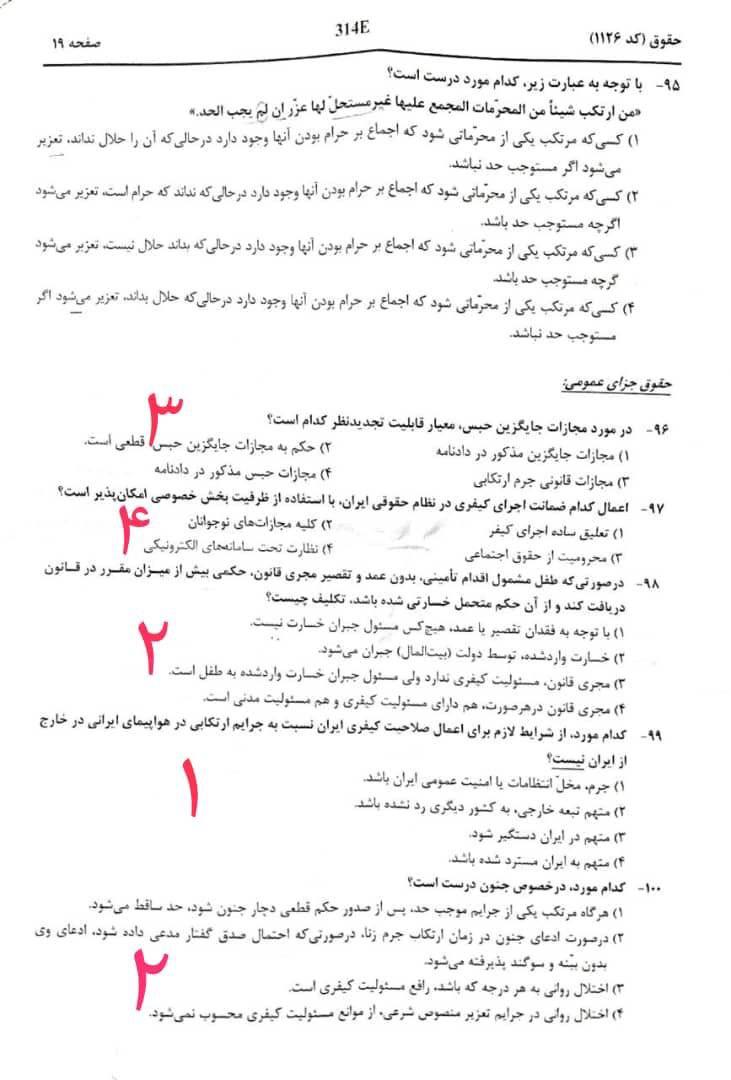 حقوق (کد ۱۱۲۶)
314E
صفحه ۱۹
۹۵- با توجه به عبارت زیر، کدام مورد درست است؟
«من ارتکب شیئاً من المحرّمات المجمع علیها غیرمستحلّ لها عزّر ان لم یجب الحد.»
۱) کسی‌که مرتکب یکی از محرّماتی شود که اجماع بر حرام بودن آنها وجود دارد درحالی‌که آن را حلال نداند، تعزیر
می‌شود اگر مستوجب حد نباشد.
۲) کسی‌که مرتکب یکی از محرّماتی شود که اجماع بر حرام بودن آنها وجود دارد درحالی‌که نداند که حرام است، تعزیر می‌شود
اگرچه مستوجب حد باشد.
۳) کسی‌که مرتکب یکی از محرّماتی شود که اجماع بر حرام بودن آنها وجود دارد درحالی‌که بداند حلال نیست، تعزیر می‌شود
گرچه مستوجب حد باشد.
۴) کسی‌که مرتکب یکی از محرّماتی شود که اجماع بر حرام بودن آنها وجود دارد درحالی‌که حلال بداند، تعزیر می‌شود اگر
مستوجب حد نباشد.
حقوق جزای عمومی:
۹۶- در مورد مجازات جایگزین حبس، معیار قابلیت تجدیدنظر کدام است؟
۳
۱) مجازات جایگزین مذکور در دادنامه ۲) حکم به مجازات جایگزین حبس، قطعی است.
۳) مجازات قانونی جرم ارتکابی ۴) مجازات حبس مذکور در دادنامه
۹۷- اعمال کدام ضمانت اجرای کیفری در نظام حقوقی ایران، با استفاده از ظرفیت بخش خصوصی امکان‌پذیر است؟
۴
۱) تعلیق ساده اجرای کیفر ۲) کلیه مجازات‌های نوجوانان
۳) محرومیت از حقوق اجتماعی ۴) نظارت تحت سامانه‌های الکترونیکی
۹۸- درصورتی‌که طفل مشمول اقدام تأمینی، بدون عمد و تقصیر مجری قانون، حکمی بیش از میزان مقرر در قانون
دریافت کند و از آن حکم متحمل خسارتی شده باشد، تکلیف چیست؟
۲
۱) با توجه به فقدان تقصیر یا عمد، هیچ‌کس مسئول جبران خسارت نیست.
۲) خسارت واردشده، توسط دولت (بیت‌المال) جبران می‌شود.
۳) مجری قانون، مسئولیت کیفری ندارد ولی مسئول جبران خسارت واردشده به طفل است.
۴) مجری قانون درهرصورت، هم دارای مسئولیت کیفری و هم مسئولیت مدنی است.
۹۹- کدام مورد، از شرایط لازم برای اعمال صلاحیت کیفری ایران نسبت به جرایم ارتکابی در هواپیمای ایرانی در خارج
از ایران نیست؟
۱
۱) جرم، مخلّ انتظامات یا امنیت عمومی ایران باشد.
۲) متهم تبعه خارجی، به کشور دیگری رد نشده باشد.
۳) متهم در ایران دستگیر شود.
۴) متهم به ایران مسترد شده باشد.
۱۰۰- کدام مورد، درخصوص جنون درست است؟
۱) هرگاه مرتکب یکی از جرایم موجب حد، پس از صدور حکم قطعی دچار جنون شود، حد ساقط می‌شود.
۲) درصورت ادعای جنون در زمان ارتکاب جرم زنا، درصورتی‌که احتمال صدق گفتار مدعی داده شود، ادعای وی
بدون بیّنه و سوگند پذیرفته می‌شود.
۲
۳) اختلال روانی به هر درجه که باشد، رافع مسئولیت کیفری است.
۴) اختلال روانی در جرایم تعزیر منصوص شرعی، از موانع مسئولیت کیفری محسوب نمی‌شود.